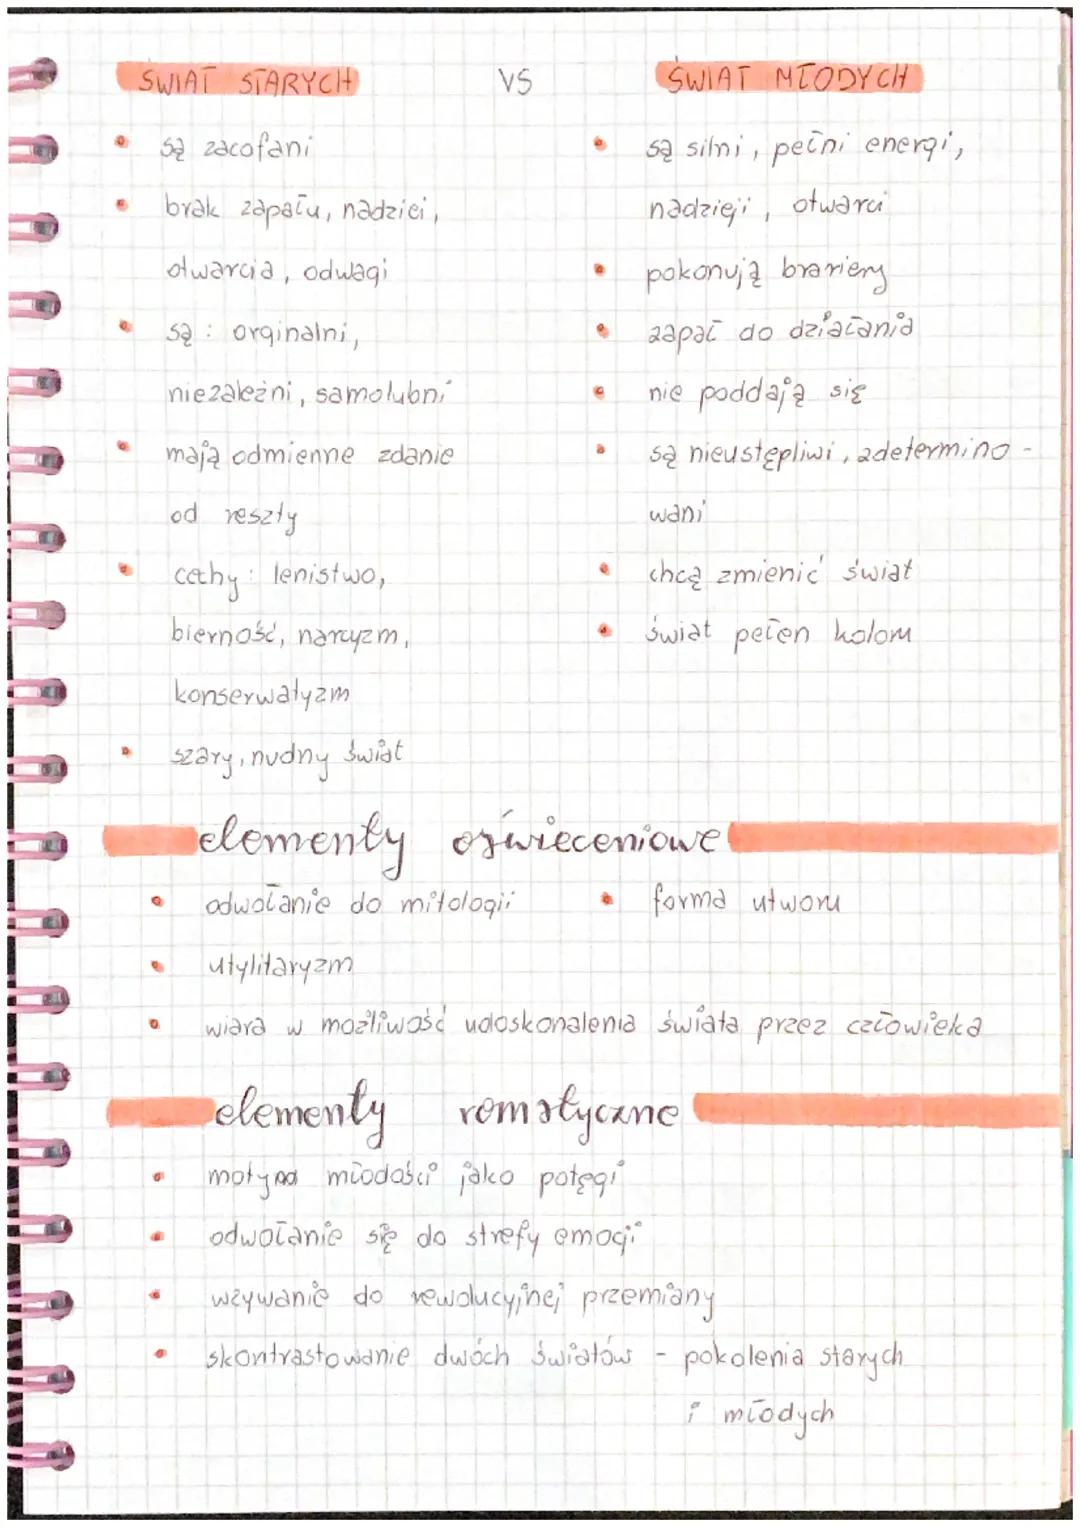 ŚWIAT STARYCH VS ŚWIAT MŁODYCH
• są zacofani
• brak zapału, nadziei,
otwarcia, odwagi
• są : orginalni,
niezależni, samolubni
• mają odmienne zdanie
od reszty
• cechy : lenistwo,
bierność, narcyzm,
konserwatyzm
• szary, nudny świat
• są silni, pełni energi,
nadzieji, otwarci
• pokonują brariery
• zapał do działania
• nie poddają się
• są nieustępliwi, zdetermino-
wani
• chcą zmienić świat
• świat pełen koloru
elementy oświeceniowe
• odwołanie do mitologii • forma utworu
• utylitaryzm
• wiara w możliwość udoskonalenia świata przez człowieka
elementy romatyczne
• motyw młodości jako potęgi
• odwołanie się do strefy emocji
• wzywanie do rewolucyjnej przemiany
• skontrastowanie dwóch światów - pokolenia starych
i młodych